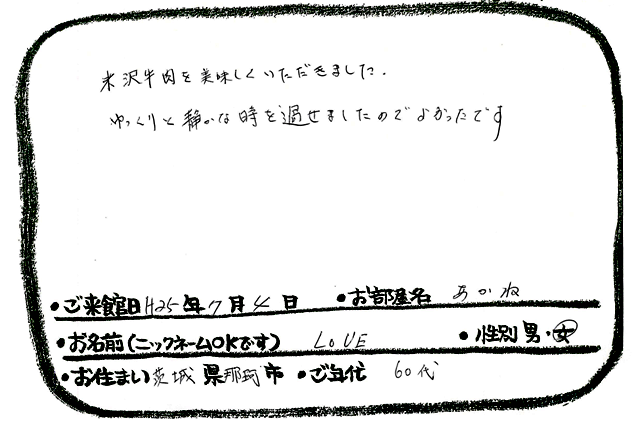 米沢牛肉を美味しくいただきました.
ゆっくりと静かな時を過せましたのでよかったです
・ご来館日 H25年7月4日 ・お部屋名 あかね
・お名前(ニックネームOKです) LOVE ・性別 男・女
・お住まい 茨城県那珂市 ・ご年代 60代